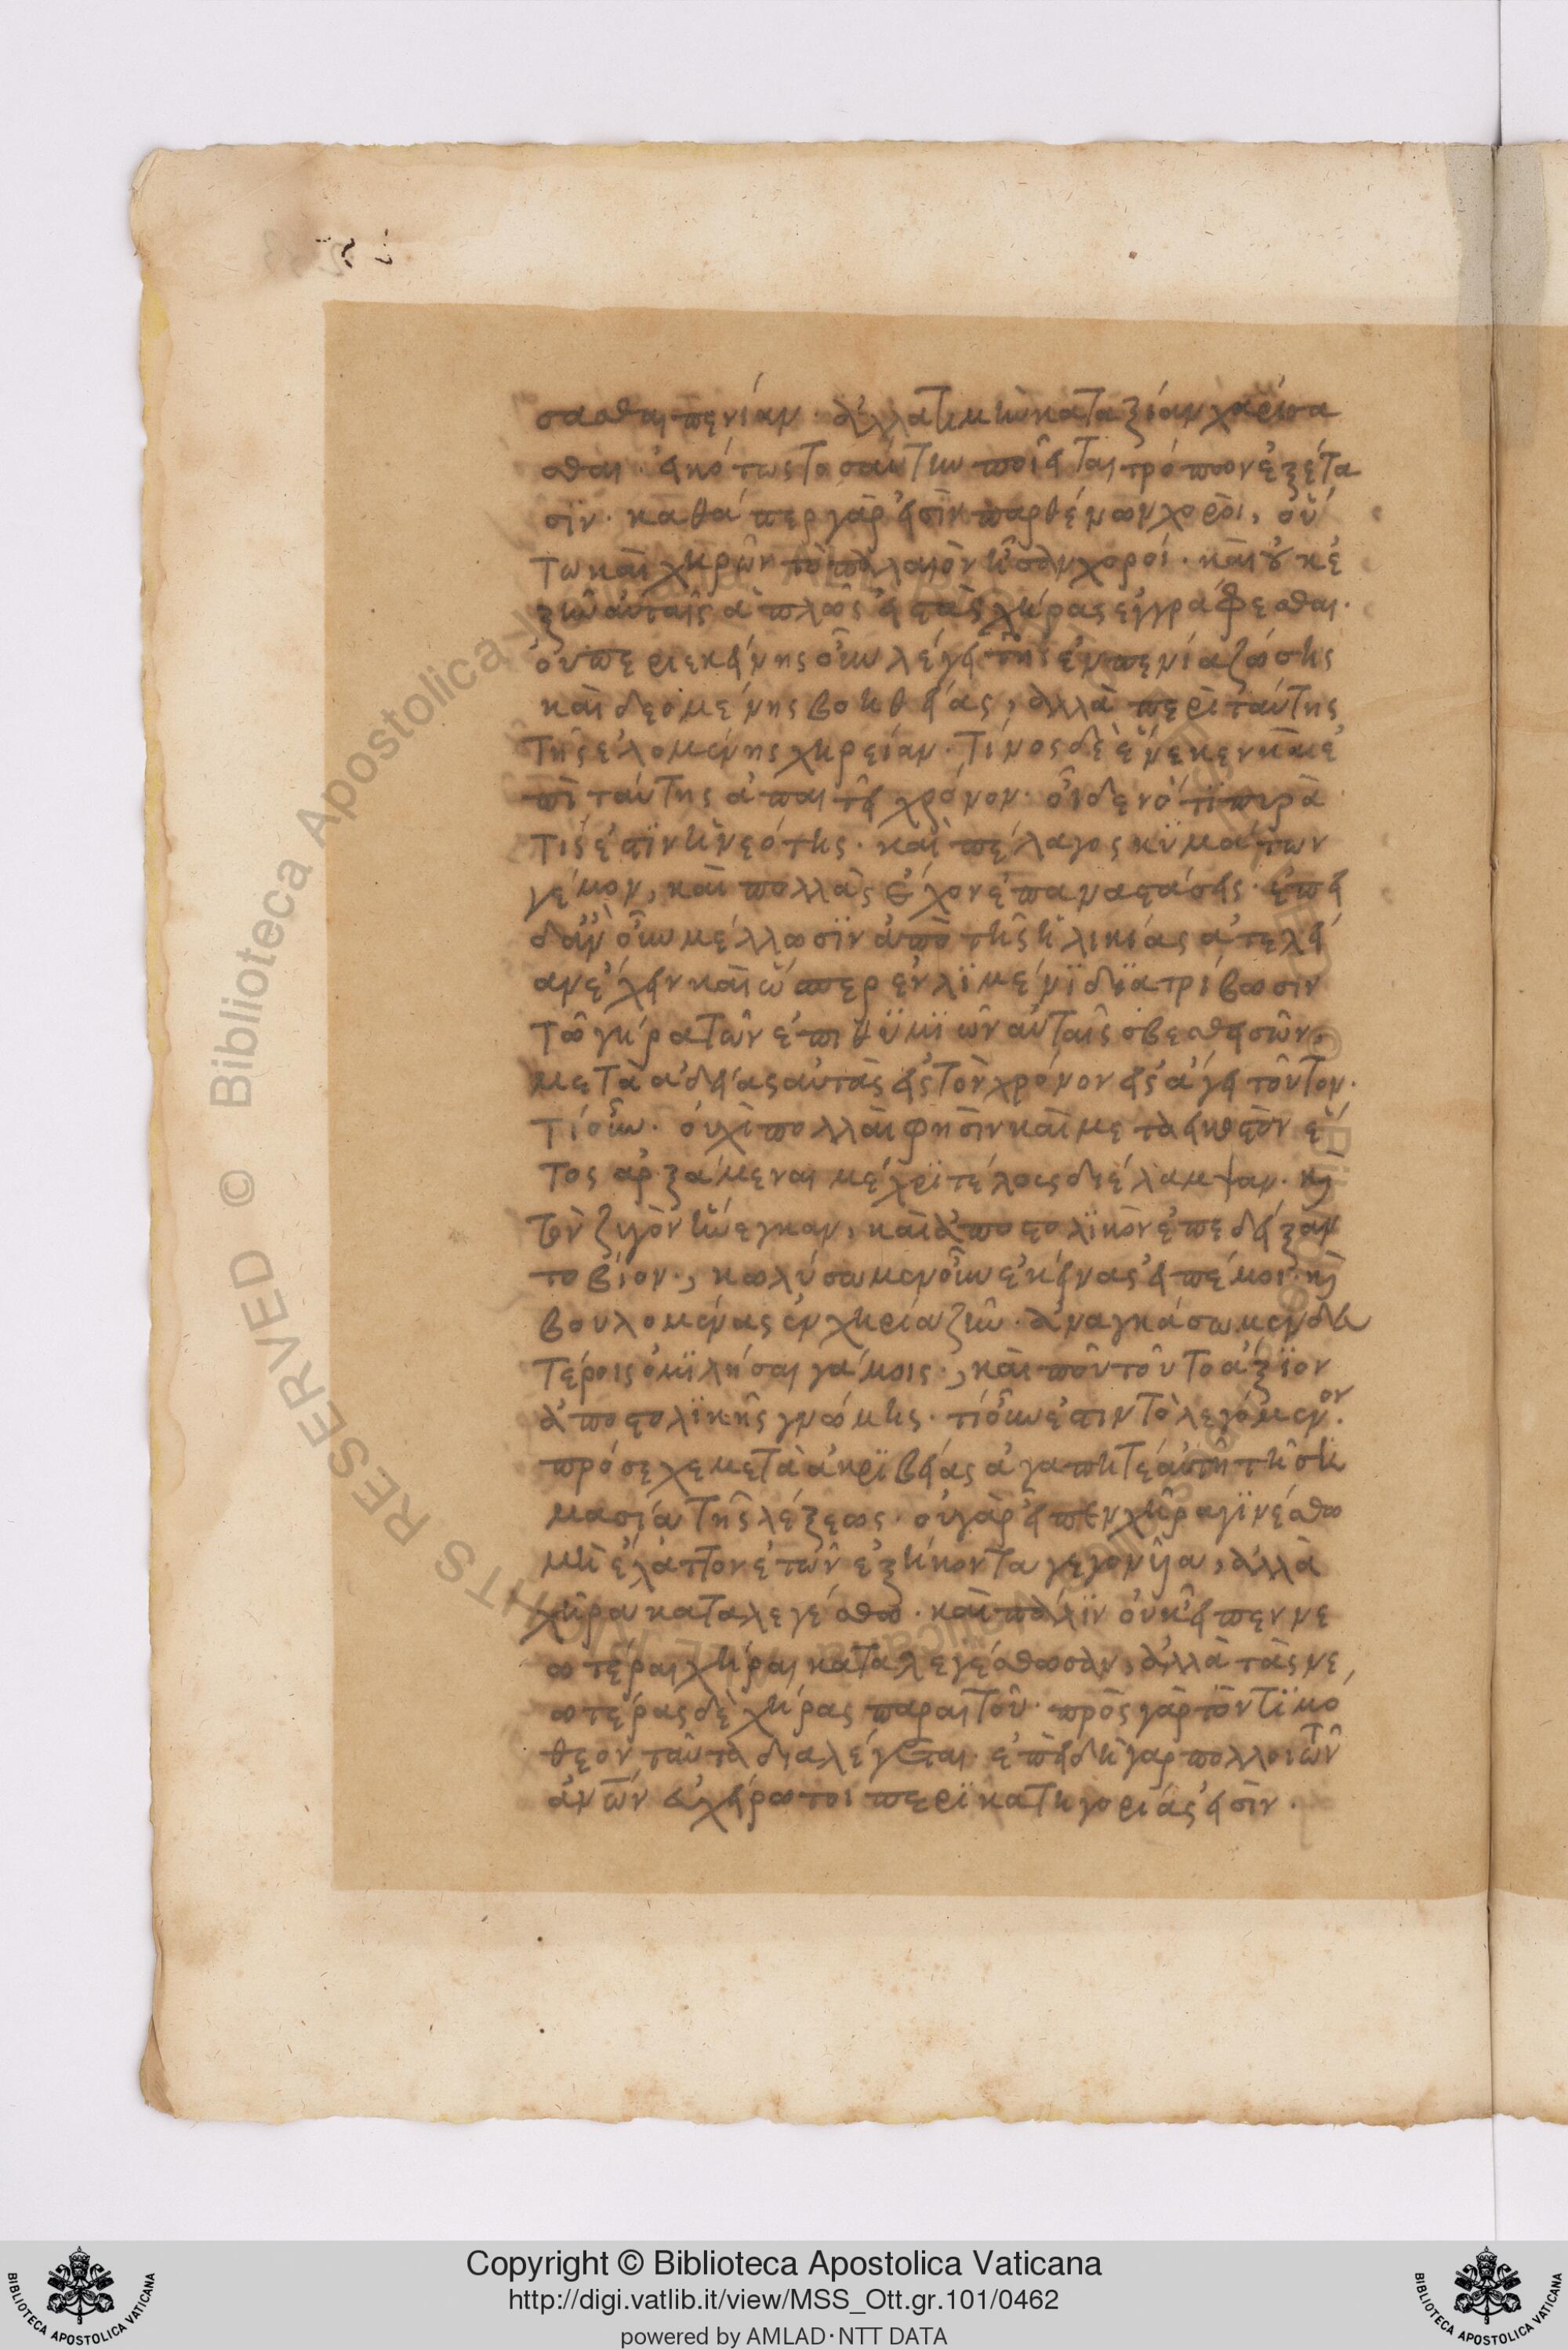 σασθαι πενίαν· ἀλλὰ τιμὴν κατ' ἀξίαν χαρίσα
σθαι· εἰκότως τοσαύτην ποιεῖται τρόπων ἐξέτα
σϊν· καθάπερ γὰρ εἰσὶν παρθένων χοροὶ, οὕ
τω καὶ χηρῶν τὸ παλαιὸν ἦσαν χοροί· καὶ οὐκ ἐ
ξῆν αὐταῖς ἁπλῶς εἰς τὰς χήρας ἐγγράφεσθαι·
οὐ περι ἐκείνης οὖν λέγει τῆς ἐν πενία ζώσης
καὶ δεομένης βοηθείας, ἀλλὰ περὶ ταύτης
τῆς ἑλομένης χηρείαν· τίνος δὲ ἕνεκεν καὶ ἐ
πὶ ταύτης ἀπαιτεῖ χρόνον· οἶδεν ὅτϊ πυρὰ
τίς ἐστϊν ἡ νεότης· καὶ πέλαγος κϋμάτων
γέμον, καὶ πολλὰς ἔχον ἐπαναστάσεις· ἐπει
δὰν οὖν μέλλωσϊν ἀπὸ τῆς ἡλικίας ἀτελεί
αν ἔχειν καὶ ὥσπερ ἐν λϊμένϊ δϊατρίβωσιν
τῶ γήρα τῶν ἐπιθϋμϊῶν αὐταῖς σβεσθεισῶν,
μετὰ ἀδείας αὐτὰς εἰς τὸν χρόνον εἰσάγει τοῦτον·
τί οὖν· οὐχὶ πολλαὶ φησὶν καὶ μετὰ εἰκοστὸν ἔ
τος ἀρξάμεναι μέχρϊ τέλους διέλαμψαν· καὶ
τὸν ζυγὸν ἤνεγκαν, καὶ ἀποστολϊκὸν ἐπεδείξαν
το βίον·, κωλύσωμεν οὖν ἐκείνας εἰπέ μοι· καὶ
βουλομένας ἐν χηρία ζῆν· ἀναγκάσωμεν δευ
τέροις ὁμϊλήσαι γάμοις·, καὶ ποῦ τοῦτο ἄξϊον
ἀποστολϊκῆς γνώμης· τί οὖν ἐστιν τὸ λεγόμενον·
πρόσεχε μετὰ ἀκρϊβείας ἀγαπητέ αὐτῆ τῆ ση
μασία τῆς λέξεως· οὐ γὰρ εἶπεν χῆρα γϊνέσθω
μὴ ἔλαττον ἐτῶν ἑξήκοντα γεγονῦια, ἀλλὰ
χῆρα καταλεγέσθω· καὶ πάλϊν οὐκ εἶπεν νε
ωτέραι χῆραι καταλεγέσθωσαν, ἀλλὰ τὰς νε
ωτέρας δὲ χήρας παραιτοῦ· πρὸς γὰρ τὸν τϊμό
θεον ταῦτα διαλέγεται· ἐπειδὴ γὰρ πολλοι τῶν
ἀνων εὐχείρωτοι περϊ κατηγορίας εἰσῒν·
Copyright © Biblioteca Apostolica Vaticana
http://digi.vatlib.it/view/MSS_Ott.gr.101/0462
powered by AMLAD·NTT DATA